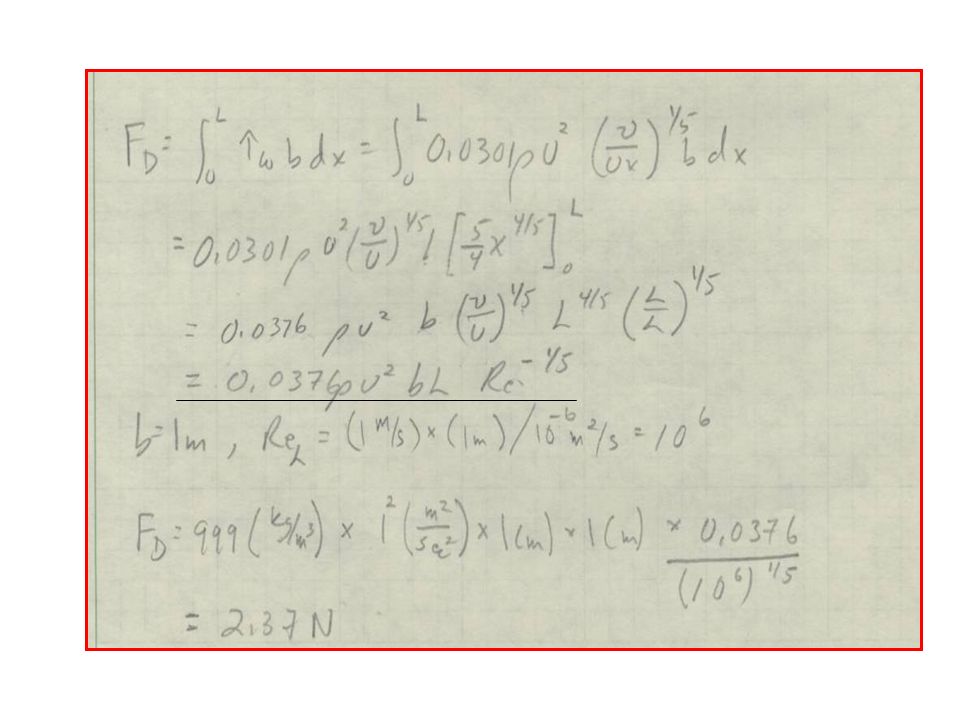 F_D = ∫₀ᴸ τ_w b dx = ∫₀ᴸ 0.0301 ρ U² (ν/Ux)^1/5 b dx
= 0.0301 ρ U² (ν/U)^1/5 b [5/4 x^4/5]₀ᴸ
= 0.0376 ρ U² b (ν/U)^1/5 L^4/5 (L/L)^1/5
= 0.0376 ρ U² bL Re^-1/5
b = 1m , Re_L = (1 m/s) × (1m) / 10^-6 m²/s = 10^6
F_D = 999 (kg/m³) × 1² (m²/sec²) × 1(m) × 1(m) × 0.0376/(10^6)^1/5
= 2.37 N